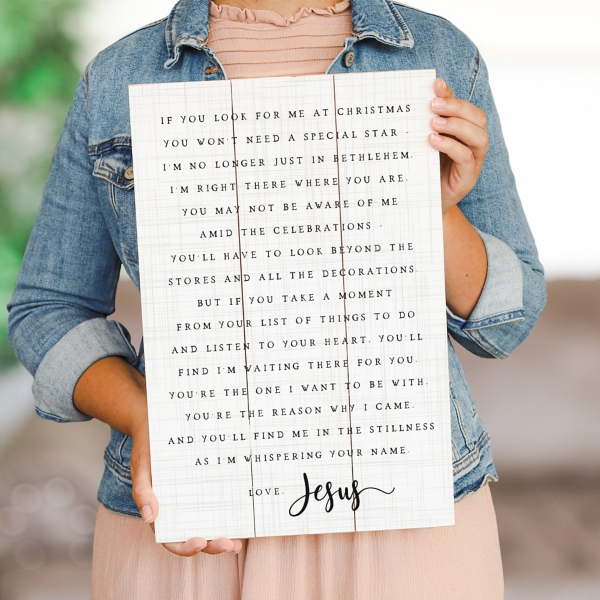 IF YOU LOOK FOR ME AT CHRISTMAS
YOU WON'T NEED A SPECIAL STAR -
I'M NO LONGER JUST IN BETHLEHEM,
I'M RIGHT THERE WHERE YOU ARE.
YOU MAY NOT BE AWARE OF ME
AMID THE CELEBRATIONS -
YOU'LL HAVE TO LOOK BEYOND THE
STORES AND ALL THE DECORATIONS.
BUT IF YOU TAKE A MOMENT
FROM YOUR LIST OF THINGS TO DO
AND LISTEN TO YOUR HEART, YOU'LL
FIND I'M WAITING THERE FOR YOU.
YOU'RE THE ONE I WANT TO BE WITH,
YOU'RE THE REASON WHY I CAME,
AND YOU'LL FIND ME IN THE STILLNESS
AS I'M WHISPERING YOUR NAME.
LOVE, Jesus